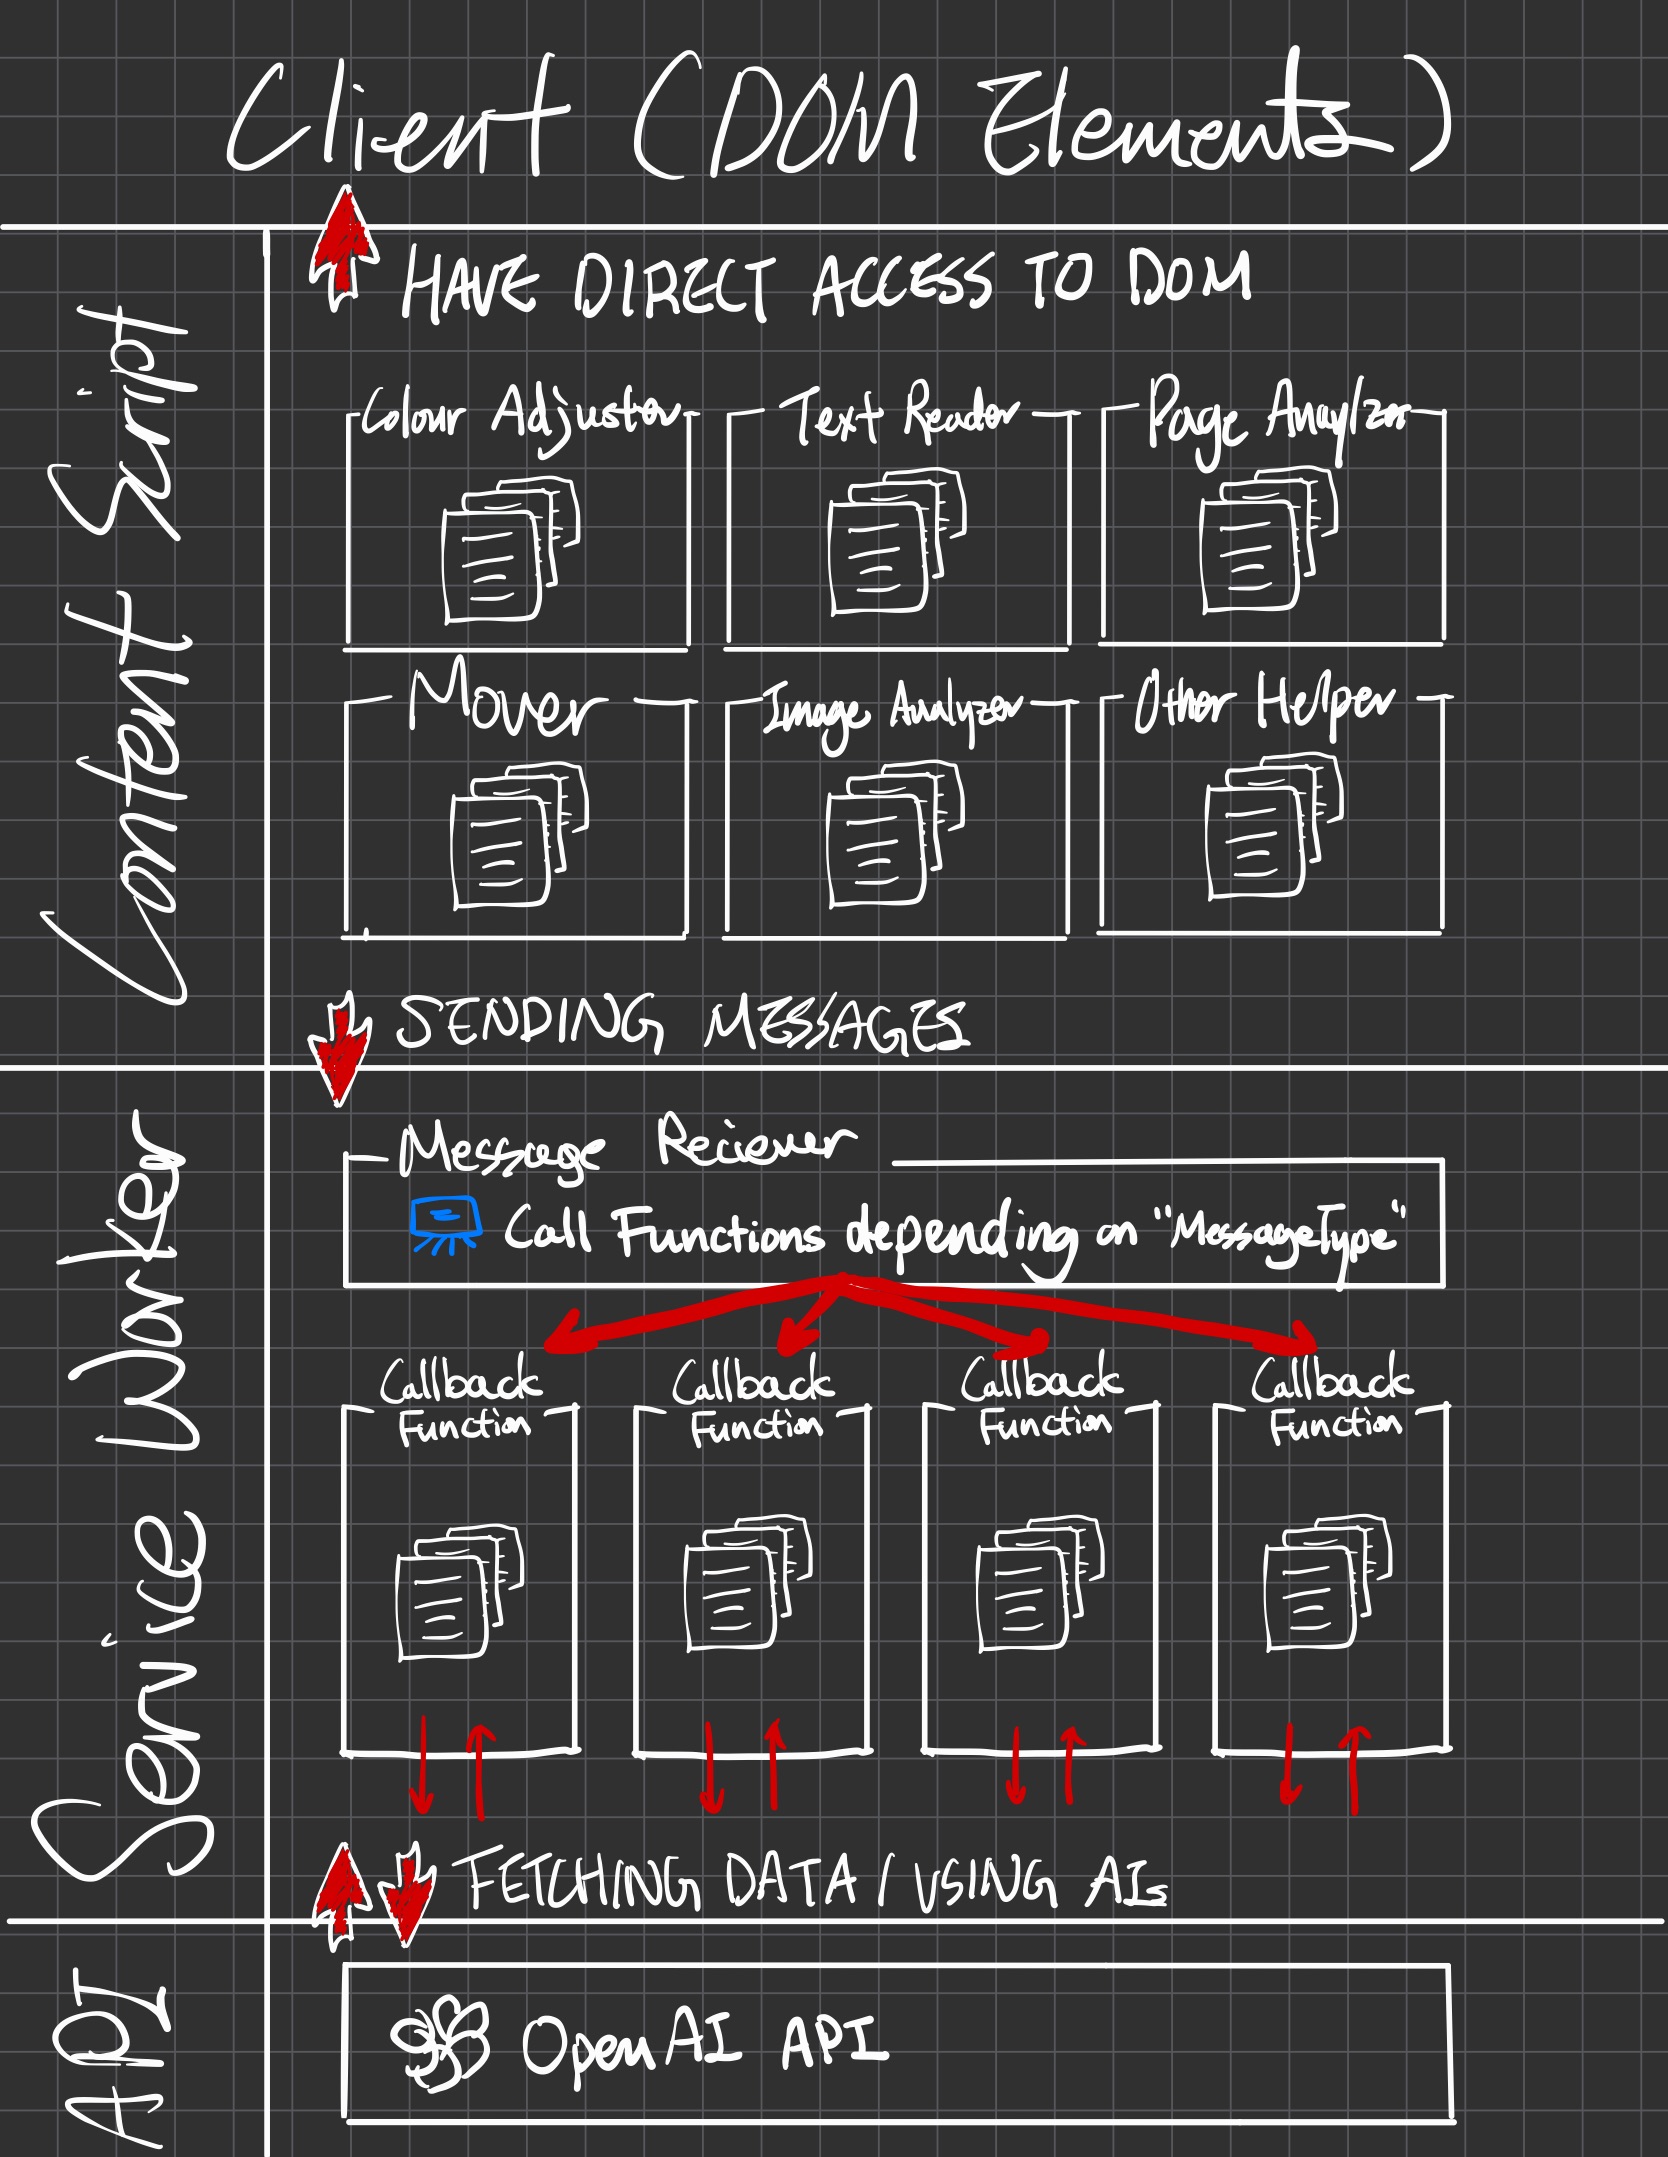 Client (DOM Elements)
Content Script
HAVE DIRECT ACCESS TO DOM
Colour Adjustor
Text Reader
Page Anaylzer
Mover
Image Analyzer
Other Helper
SENDING MESSAGES
Service Worker
Message Reciever
Call Functions depending on "MessageType"
Callback
Function
Callback
Function
Callback
Function
Callback
Function
FETCHING DATA / USING AIs
API
OpenAI API